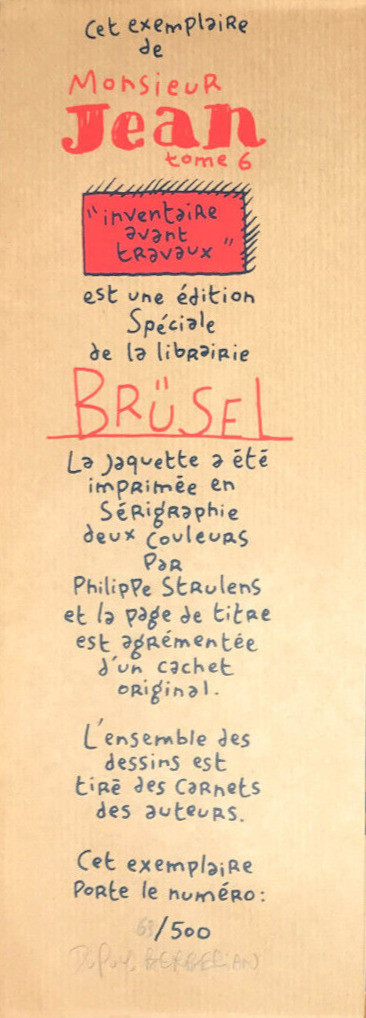 Cet exemplaire
de
Monsieur
Jean
tome 6
"inventaire
avant
travaux"
est une édition
Spéciale
de la librairie
BRÜSEL
La jaquette a été
imprimée en
Sérigraphie
deux couleurs
par
Philippe Strulens
et la page de titre
est agrémentée
d'un cachet
original.
L'ensemble des
dessins est
tiré des carnets
des auteurs.
Cet exemplaire
porte le numéro:
/500
Dupuy BERBERIAN